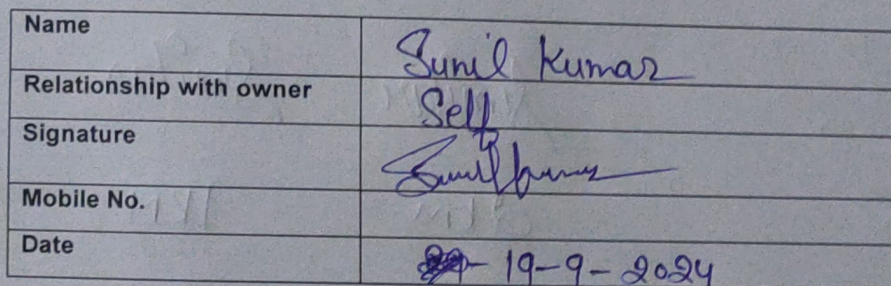 Name Sunil Kumar
Relationship with owner Self
Signature Sunil Kumar
Mobile No.
Date - 19-9-2024